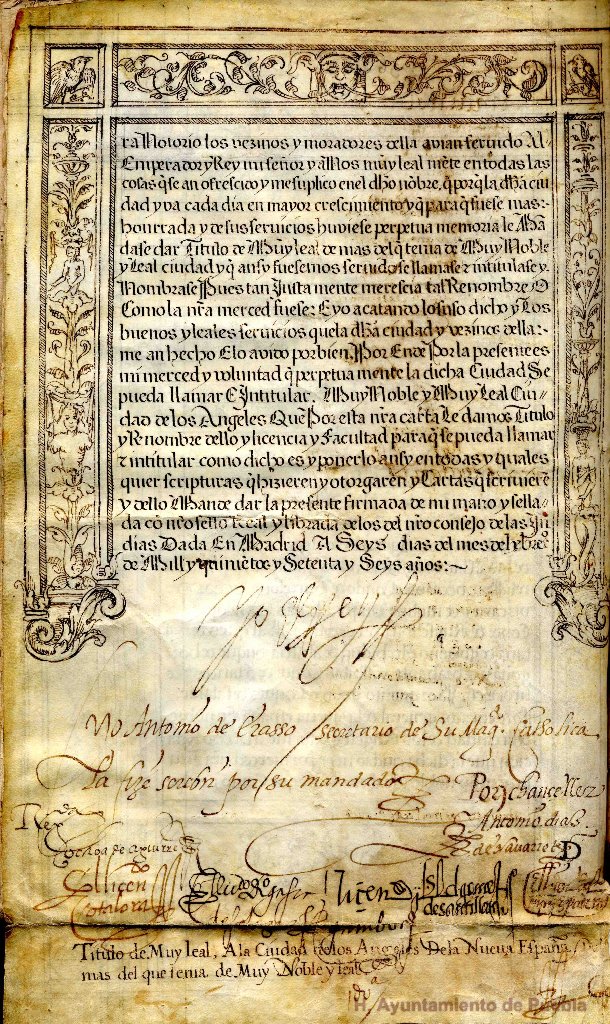 ra Notorio los vezinos y moradores della avian servido Al
Emperador y Rey mi señor y A Nos muy leal mēte en todas las
cosas q̄ se an ofrescido y me suplico en el dho nōbre, q̄ porq̄ la dha ciu
dad yva cada día en mayor crescimiento y q̄ para q̄ fuese mas
honrrada y de sus servicios huviese perpetua memoria le Mā
dase dar Titulo de Muy leal de mas del q̄ tenia de Muy Noble
y Leal ciudad y q̄ ansy fuesemos servido se llamase e intitulase y
Nombrase Pues tan Justa mente merescia tal Renombre O
Como la nrā merced fuese: E yo acatando lo suso dicho y Los
buenos y leales servicios que la dhā ciudad y vezinos della
me an hecho E lo avido por bien, Por Ende Por la presente es
mi merced y voluntad q̄ perpetua mente la dicha Ciudad Se
pueda llamar E Intitular, Muy Noble y Muy Leal Ciu
dad de los Angeles Que Por esta nrā carta Le damos Titulo
y Renombre dello y licencia y Facultad para q̄ se pueda llamar
e intitular como dicho es y ponerlo ansy en todas y quales
quier scripturas q̄ hizieren y otorgarēn y Cartas q̄ scrivierē
y dello Mande dar la presente firmada de mi mano y sella
da cō nrō sello Real y librada de los del nrō consejo de las Yn
dias Dada En Madrid A Seys dias del mes de
de Mill y quiniētos y Setenta y Seys años:~
Yo El Rey
Yo Antonio de Erasso secretario de Su Magᵈ. Catholica
La fize screvir por su mandado
Por chanceller
Antonio dias
de Navarrete
Ochoa de Aguirre
El licen
Otalora
El licen
de santillan
Titulo de Muy leal, A la Ciudad de los Angeles De la Nueva España
mas del que tenia de Muy Noble y leal
H. Ayuntamiento de Puebla